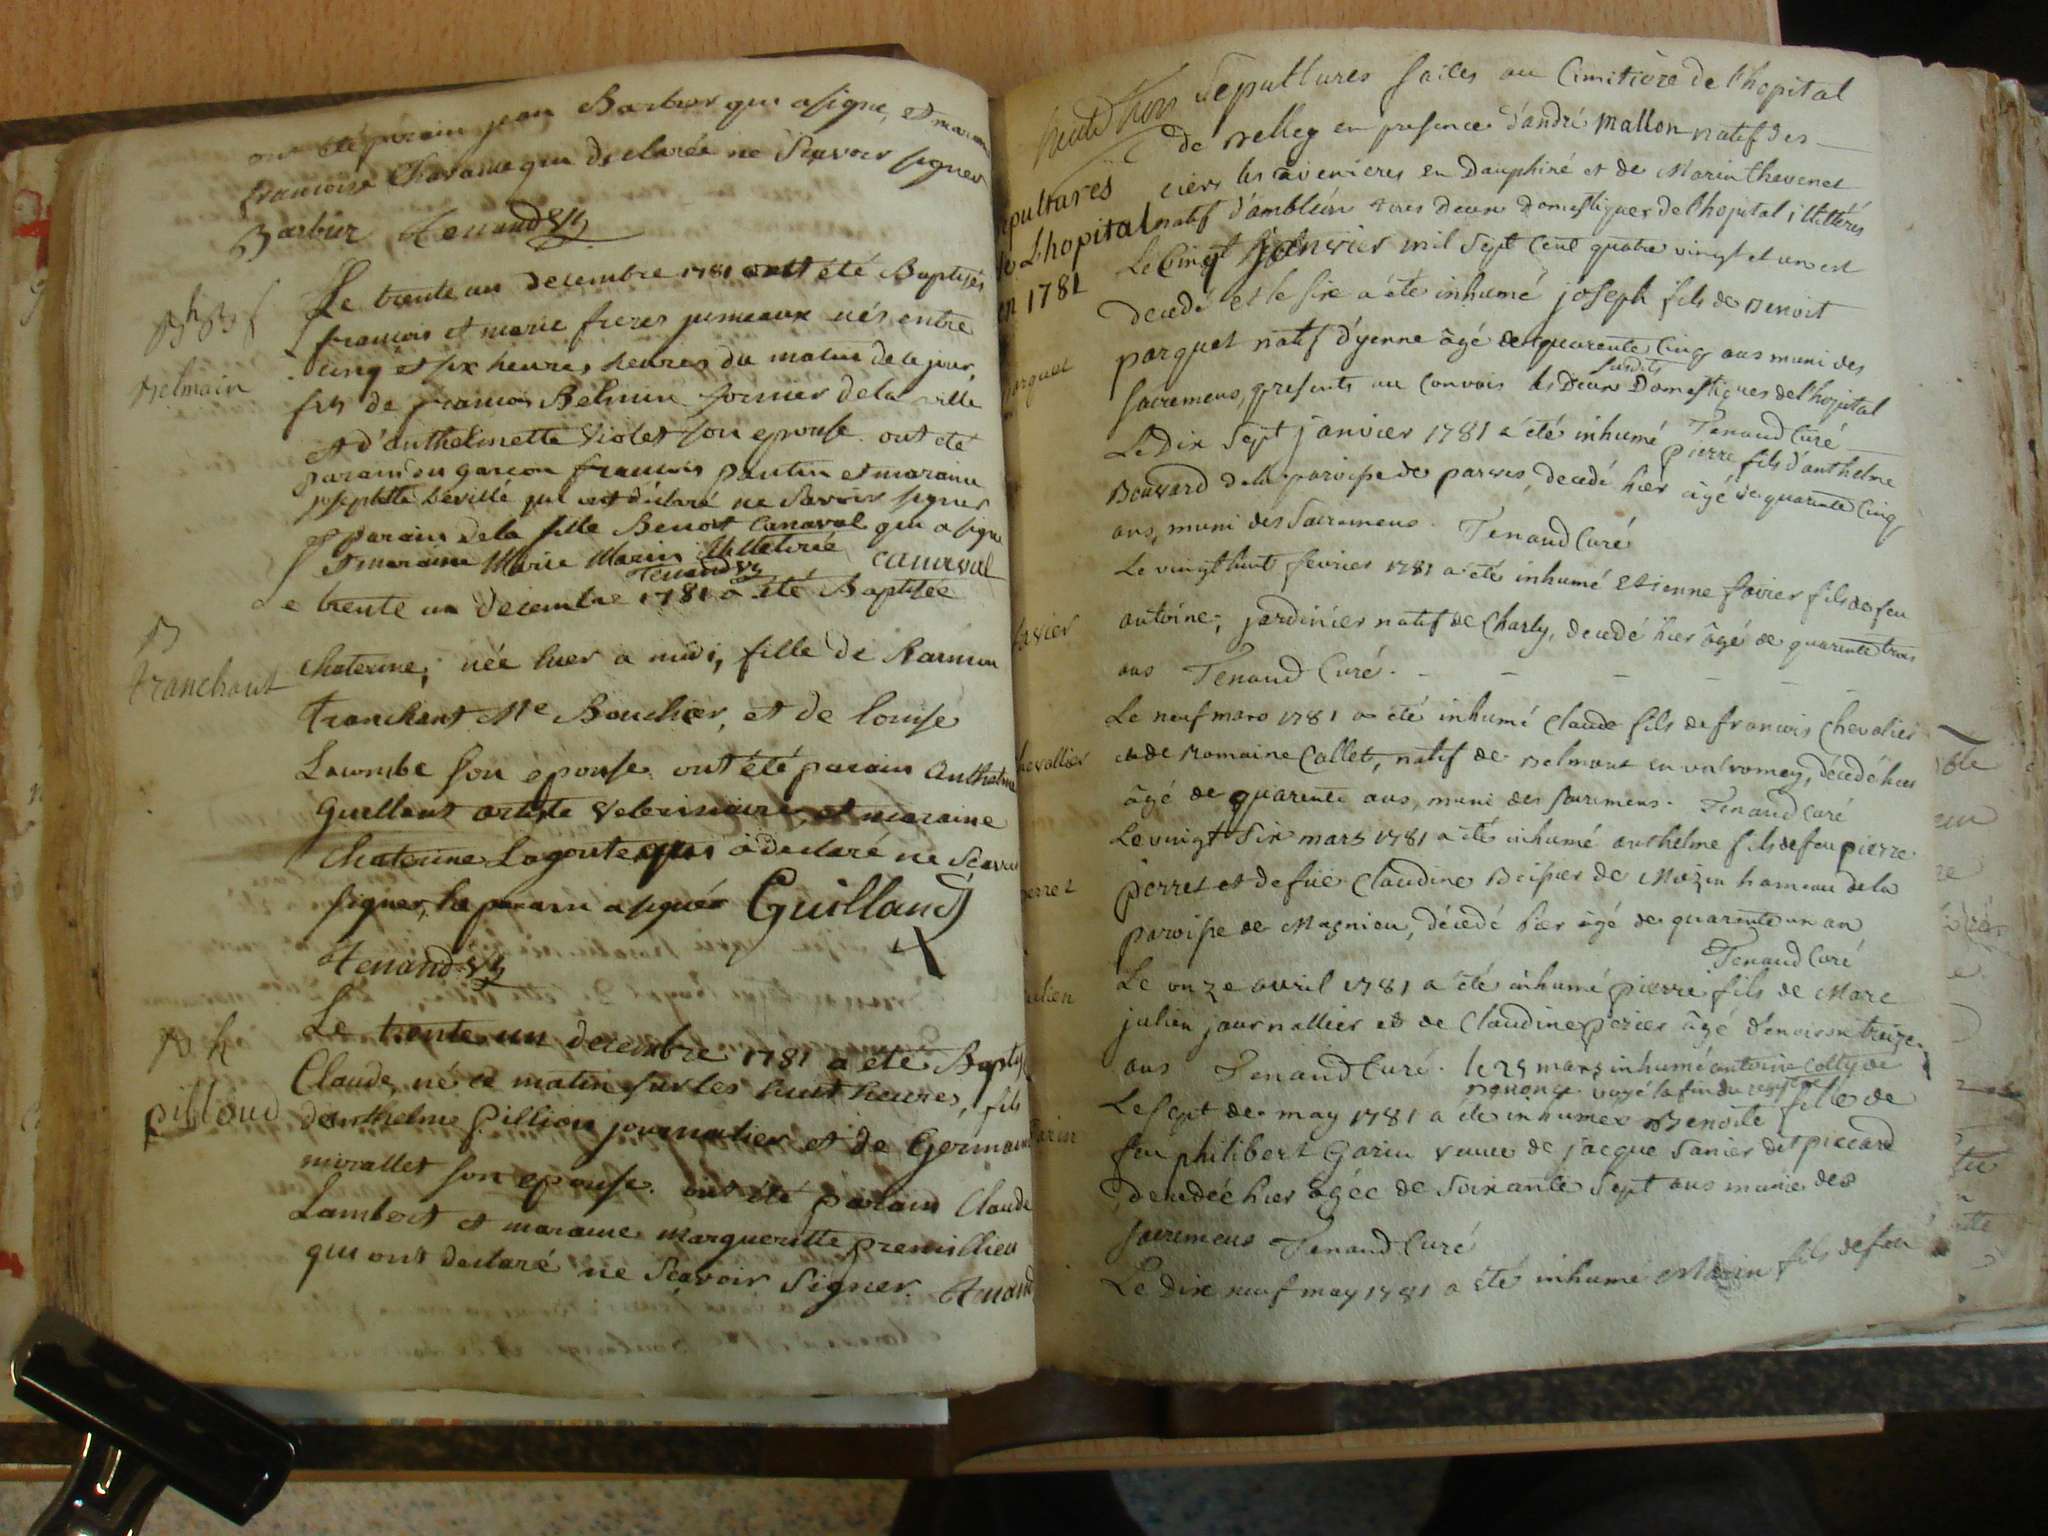 ont été parain jean Barbier qui a signe, et maraine
francoise Charame qui declarée ne Scavoir signer
Barbier Tenand
Le trente un decembre 1781 ont été Baptisés
francois et marie freres jumeaux nés entre
Belmain
cinq et six heures heures du matin de ce jour,
fils de francois Belmin fornier de la ville
et d'anthelmette Violet son epouse. ont été
parain du garcon francois pantin et maraine
josephtte qui ont déclaré ne Savoir signer
et parain de la fille Benoit Canaval qui a signe
et maraine Marie Marin illetérée canaval
Tenand
Le trente un decembre 1781 a été Baptisée
B
tranchant
Chaterine, née hier a midi, fille de
tranchant Me Boucher, et de louise
Lacombe son epouse. ont été parain anthelme
Guelland artiste veterinaire, et maraine
Chaterine Lagoute qui a declaré ne Scavoir
signer, le parain a signé Guilland
Tenand
Le trente un decembre 1781 a eté Baptisé
Pilloud
Claude, né ce matin sur les huit heures, fils
d'anthelme pillion journalier et de Germaine
morallet son epouse. ont été parain Claude
Lambert et maraine margueritte premillieu
qui ont declaré ne Scavoir Signer. Tenand
Sepultures faites au Cimitière de l'hopital
de Belley en presence d'andré mallon natif des
Sepultures
les avenieres en Dauphiné et de Marin thevenet
de L'hopital
natif d'ambléon tous deux domestiques de l'hopital illittérés
en 1781
Le Cinq janvier mil Sept Cent quatre vingt et un est
decedé et le six a été inhumé joseph fils de Benoit
parquet
parquet natif d'yenne âgé de quarente Cinq ans muni des
susdits
Sacremens, presents au Convois les Deux Domestiques de l'hopital
Tenand Curé
Le Dix Sept janvier 1781 a été inhumé pierre fils d'anthelme
Bouvard de la paroisse de parves, decedé hier âgé de quarante Cinq
ans, muni des Sacremens. Tenand Curé
Le vingt huit fevrier 1781 a été inhumé Etienne favier fils de feu
favier
antoine, jardinier natif de Charly, decedé hier âgé de quarente trois
ans Tenand Curé.
Le neuf mars 1781 a été inhumé Claude fils de francois Chevalier
chevallier
et de Romaine Collet, natif de Belmont en valromey, décedé hier
âgé de quarente ans, muni des sacremens. Tenand Curé
Le vingt Six mars 1781 a été inhumé anthelme fils de feu pierre
perret
perret et de füe Claudine de hameau de la
paroisse de Magnieu, décedé hier âgé de quarente un an
Tenand Curé
Le onze avril 1781 a été inhumé pierre fils de Marc
julien
julien journallier et de Claudine perier âgé d'environ treize
ans Tenand Curé. le 25 mars inhumé antoine Colly de
voyé la fin du registre
Le Sept de may 1781 a été inhumée Benoite fille de
Garin
feu philibert Garin veuve de jacque Sanier dit piccard
decedée hier âgée de Soixante Sept ans munie des
sacremens Tenand Curé
Le Dix neuf may 1781 a été inhumé Marin fils de feu